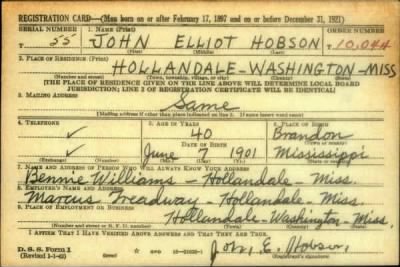 REGISTRATION CARD—(Men born on or after February 17, 1897 and on or before December 31, 1921)
SERIAL NUMBER 1. NAME (Print) ORDER NUMBER
T 55 JOHN ELLIOT HOBSON T 10,044
(First) (Middle) (Last)
2. PLACE OF RESIDENCE (Print)
HOLLANDALE-WASHINGTON-MISS
(Number and street) (Town, township, village, or city) (County) (State)
[THE PLACE OF RESIDENCE GIVEN ON THE LINE ABOVE WILL DETERMINE LOCAL BOARD
JURISDICTION; LINE 2 OF REGISTRATION CERTIFICATE WILL BE IDENTICAL]
3. MAILING ADDRESS
Same
[Mailing address if other than place indicated on line 2. If same insert word same]
4. TELEPHONE 5. AGE IN YEARS 6. PLACE OF BIRTH
✓ 40 Brandon
DATE OF BIRTH (Town or county)
✓ June 7 1901 Mississippi
(Exchange) (Number) (Mo.) (Day) (Yr.) (State or country)
7. NAME AND ADDRESS OF PERSON WHO WILL ALWAYS KNOW YOUR ADDRESS
Bennie Williams - Hollandale - Miss.
8. EMPLOYER'S NAME AND ADDRESS
Marcus Treadway - Hollandale - Miss.
9. PLACE OF EMPLOYMENT OR BUSINESS
Hollandale-Washington-Miss.
(Number and street or R. F. D. number) (Town) (County) (State)
I AFFIRM THAT I HAVE VERIFIED ABOVE ANSWERS AND THAT THEY ARE TRUE.
D. S. S. Form 1
(Revised 1-1-42) (over) John E. Hobson
(Registrant's signature)